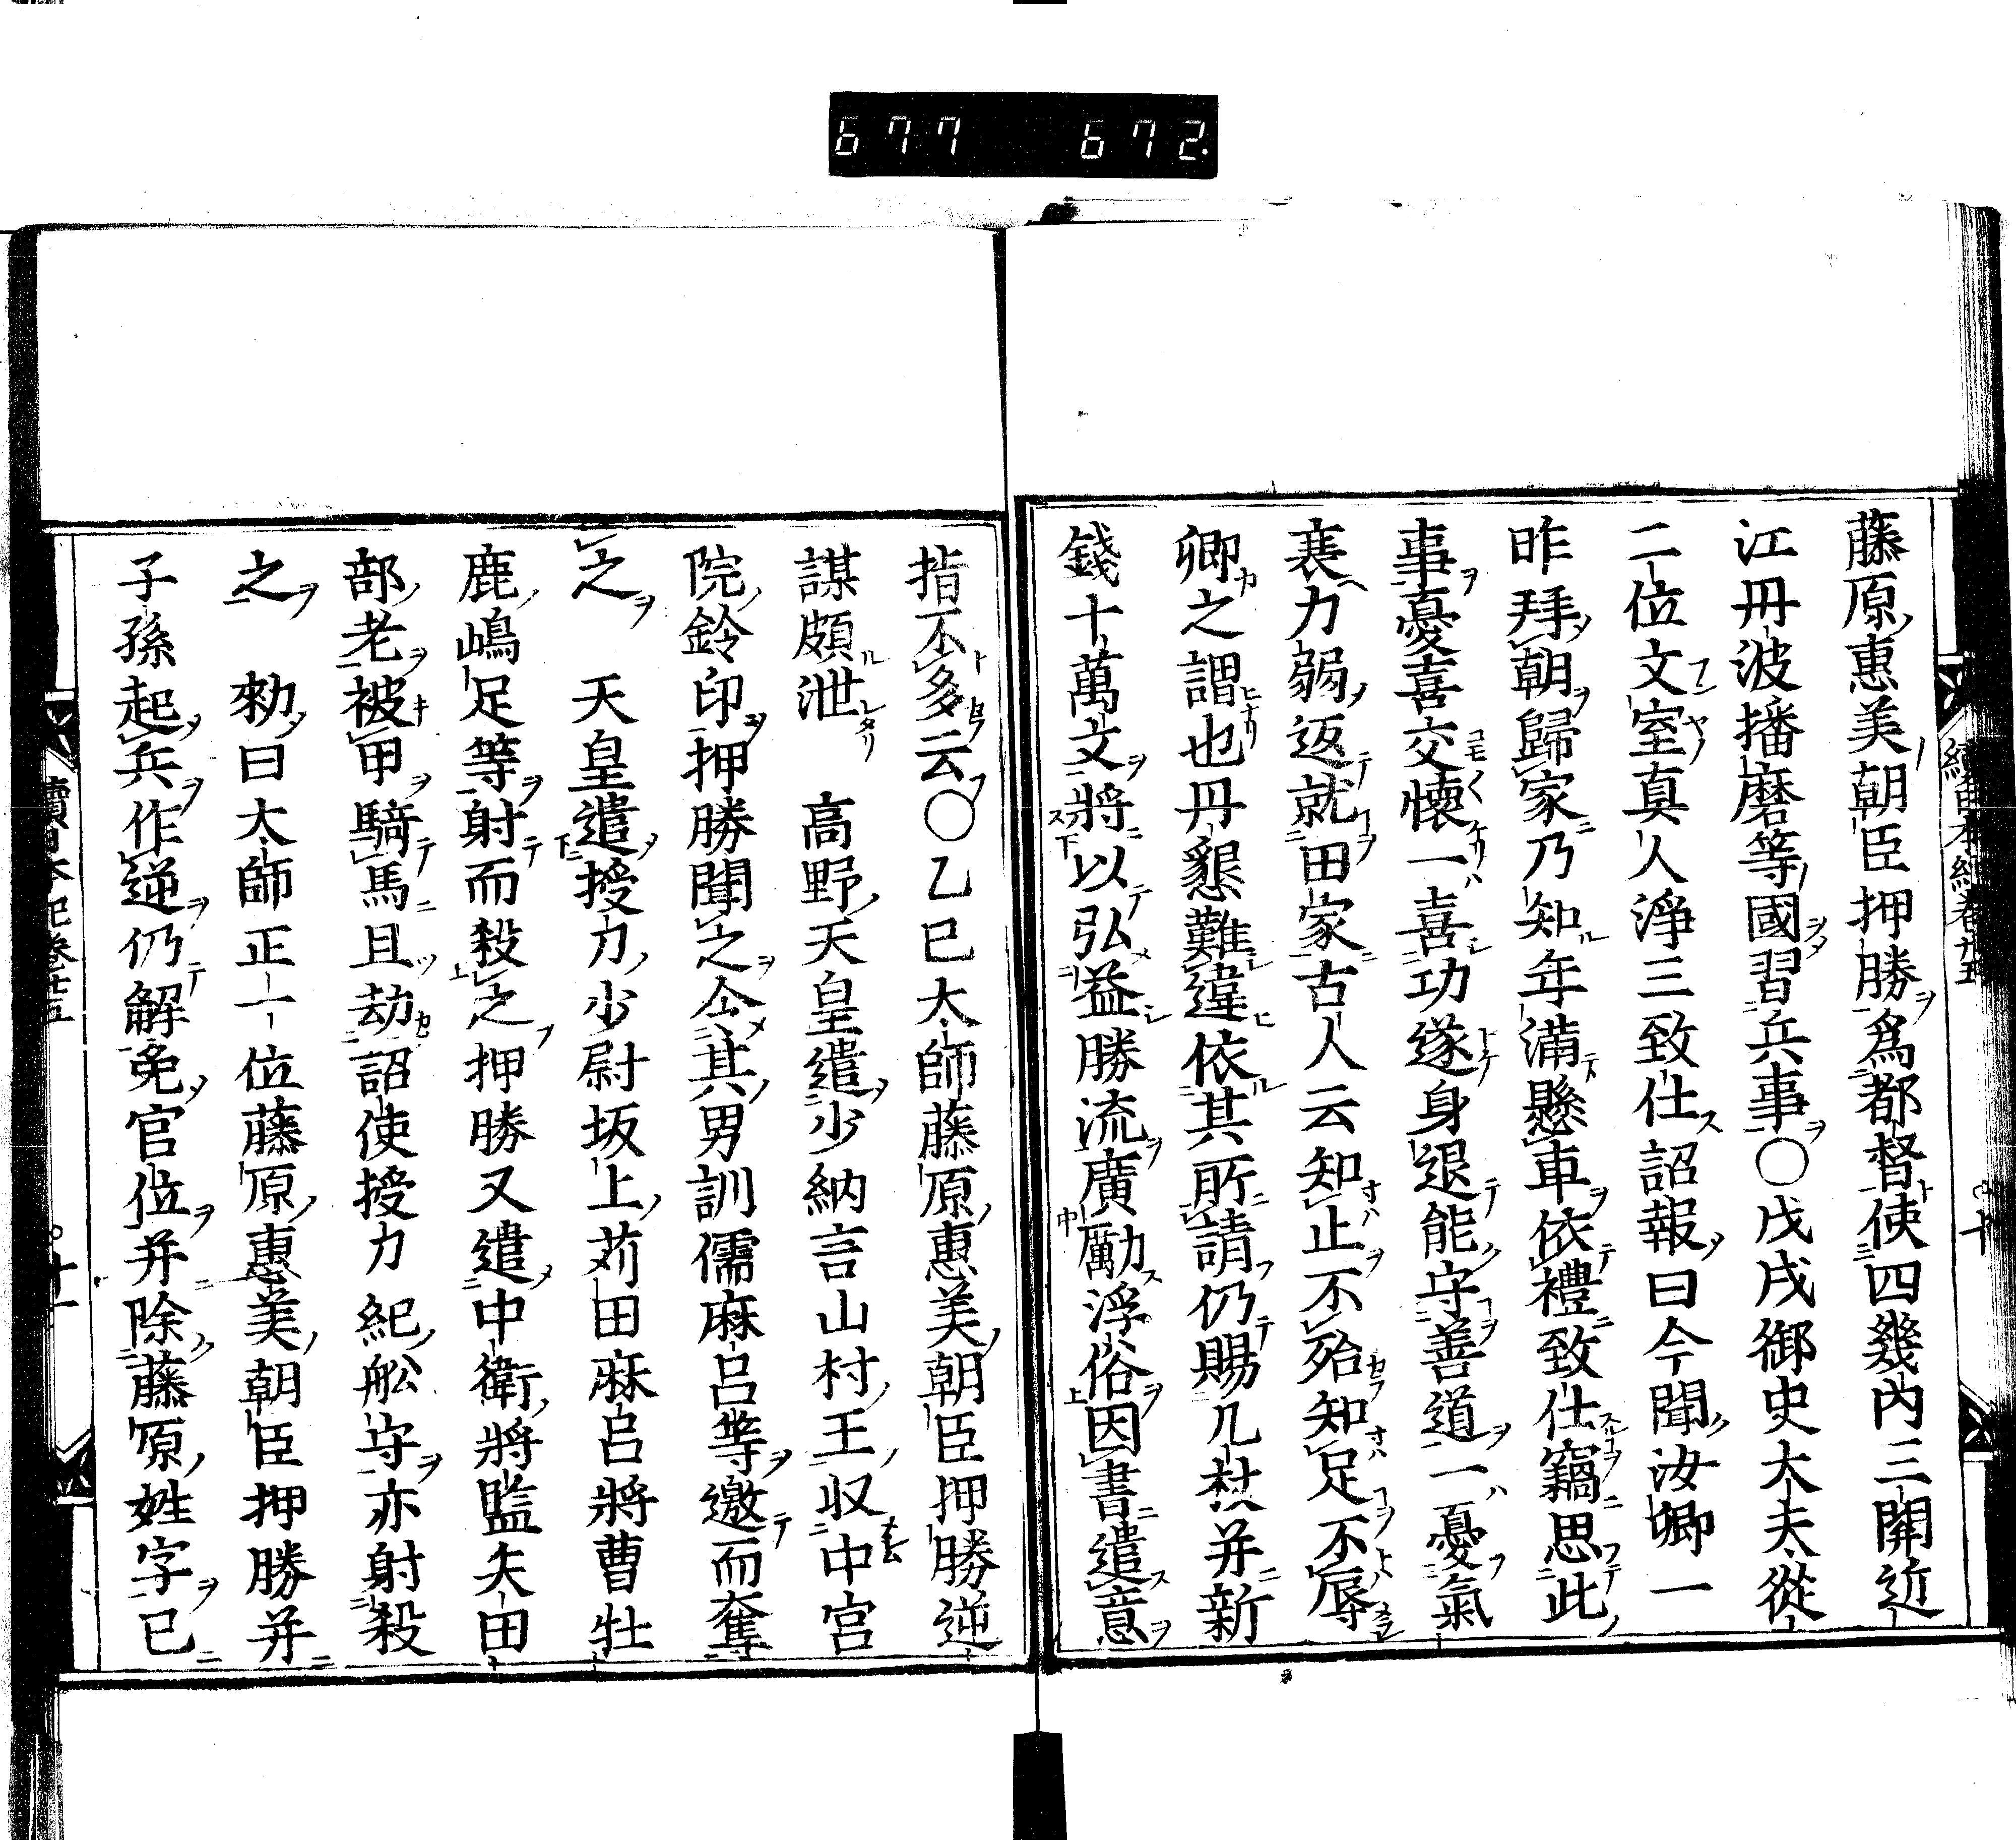 677 672.
藤原惠美朝臣押勝爲都督使四幾內三関近
江丹波播磨等國習兵事○戊戌御史大夫從
二位文室真人淨三致仕詔報曰今聞汝卿一
昨拜朝歸家乃知年滿懸車依禮致仕竊思此
事憂喜交懷一喜功遂身退能守善道一憂氣
衰力弱返就田家古人云知止不殆知足不辱
卿之謂也丹懇難違依其所請仍賜几杖并新
錢十萬文將以弘益勝流廣勵浮俗因書遣意
指不多云○乙巳大師藤原惠美朝臣押勝逆
謀頗泄 高野天皇遣少納言山村王収中宮
院鈴印押勝聞之令其男訓儒麻呂等邀而奪
之 天皇遣授刀少尉坂上苅田麻呂將曹牡
鹿嶋足等射而殺之押勝又遣中衛將監矢田
部老被甲騎馬且劫詔使授刀紀舩守亦射殺
之 勅曰太師正一位藤原惠美朝臣押勝并
子孫起兵作逆仍解免官位并除藤原姓字已
續日本紀卷廿五